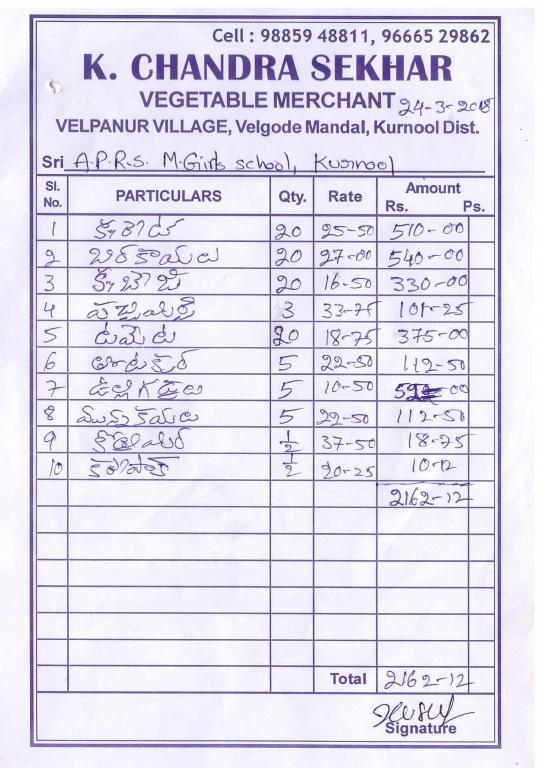 Cell : 98859 48811, 96665 29862
K. CHANDRA SEKHAR
VEGETABLE MERCHANT 24-3-2018
VELPANUR VILLAGE, Velgode Mandal, Kurnool Dist.
Sri A.P.R.S. M.Girls school, Kurnool
Sl. No. PARTICULARS Qty. Rate Amount Rs. Ps.
1 క్యారెట్ 20 25-50 510-00
2 బీరకాయలు 20 27-00 540-00
3 క్యాబేజి 20 16-50 330-00
4 పచ్చిమిర్చి 3 33-75 101-25
5 టమోట 20 18-75 375-00
6 5 22-50 112-50
7 ఉల్లిగడ్డలు 5 10-50 00
8 మునక్కాయలు 5 22-50 112-50
9 కొత్తిమీర ½ 37-50 18-75
10 కరివేపాక్ ½ 20-25 10-12
2162-12
Total 2162-12
Signature